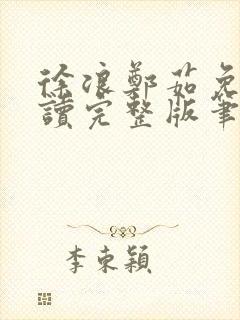 徐浪鄭茹免
讀完整版筆
李東穎